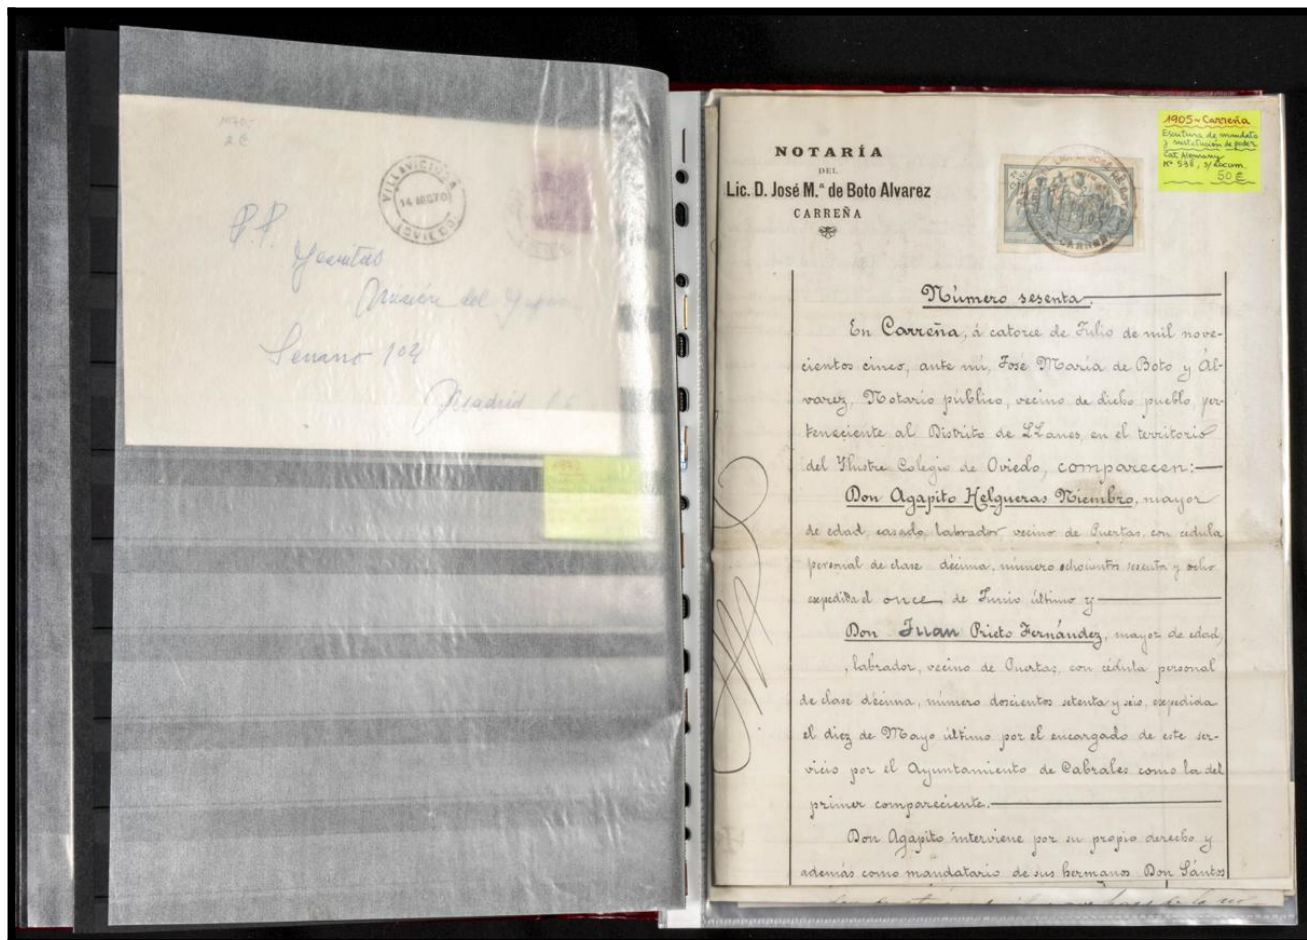 1970
2 €
VILLAVICIOSA
(OVIEDO)
P.P. Jesuitas
Misión del
Serrano 104
Madrid
1905 ~ Carreña
Escritura de mandato
y sustitución de poder
Cat. Alemany
Nº 538, s/ docum.
50 €
NOTARÍA
DEL
Lic. D. José M.ª de Boto Alvarez
CARREÑA
Número sesenta.
En Carreña, á catorce de Julio de mil nove-
cientos cinco, ante mí, José María de Boto y Ál-
varez, Notario público, vecino de dicho pueblo, per-
teneciente al Distrito de LLanes, en el territorio
del Ilustre Colegio de Oviedo, comparecen:
Don Agapito Helgueras Niembro, mayor
de edad, casado, labrador vecino de Puertas, con cédula
personal de clase décima, número ochocientos sesenta y ocho
expedida el once de Junio último y
Don Juan Prieto Fernández, mayor de edad,
, labrador, vecino de Puertas, con cédula personal
de clase décima, número doscientos setenta y seis, expedida
el diez de Mayo último por el encargado de este ser-
vicio por el Ayuntamiento de Cabrales como la del
primer compareciente.
Don Agapito interviene por su propio derecho y
además como mandatario de sus hermanos Don Sántos